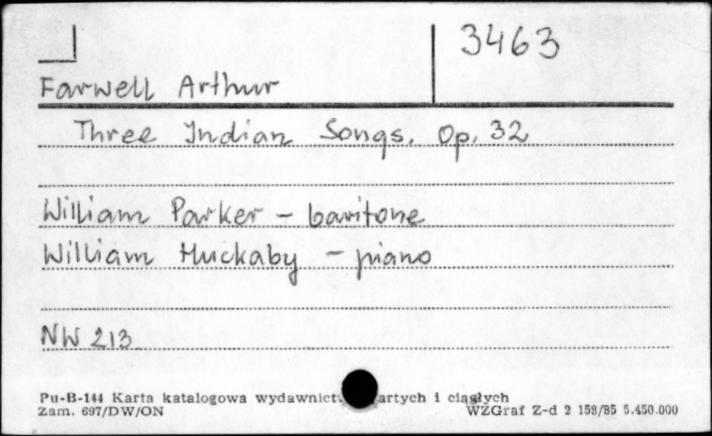 3463
Farwell Arthur
Three Indian Songs. Op. 32
William Parker - baritone
William Huckaby - piano
NW 213
Pu-B-144 Karta katalogowa wydawnict artych i ciągłych
Zam. 697/DW/ON WZGraf Z-d 2 158/85 5.450.000